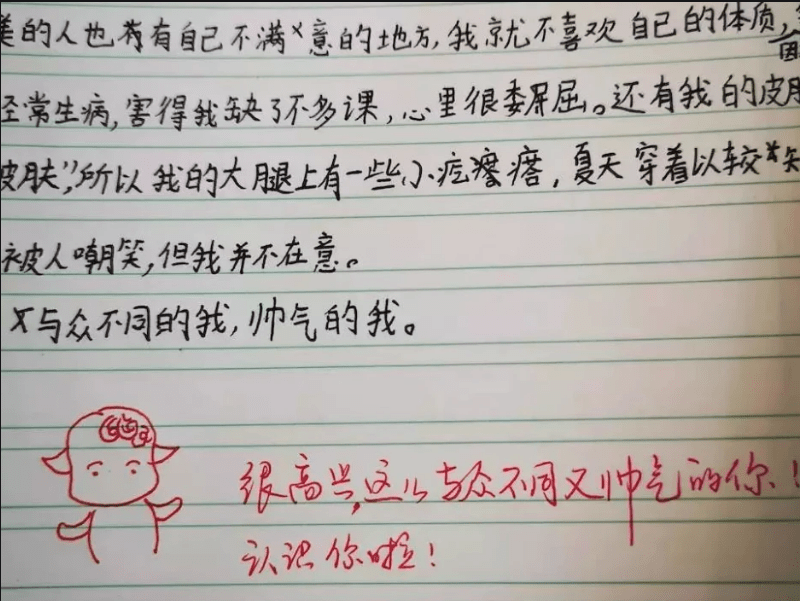 美的人也有自己不满意的地方,我就不喜欢自己的体质,
经常生病,害得我缺了不多课,心里很委屈。还有我的皮肤
皮肤”,所以我的大腿上有一些小疙瘩,夏天穿着以较
被人嘲笑,但我并不在意。
与众不同的我,帅气的我。
很高兴,这么与众不同又帅气的你!
认识你啦!